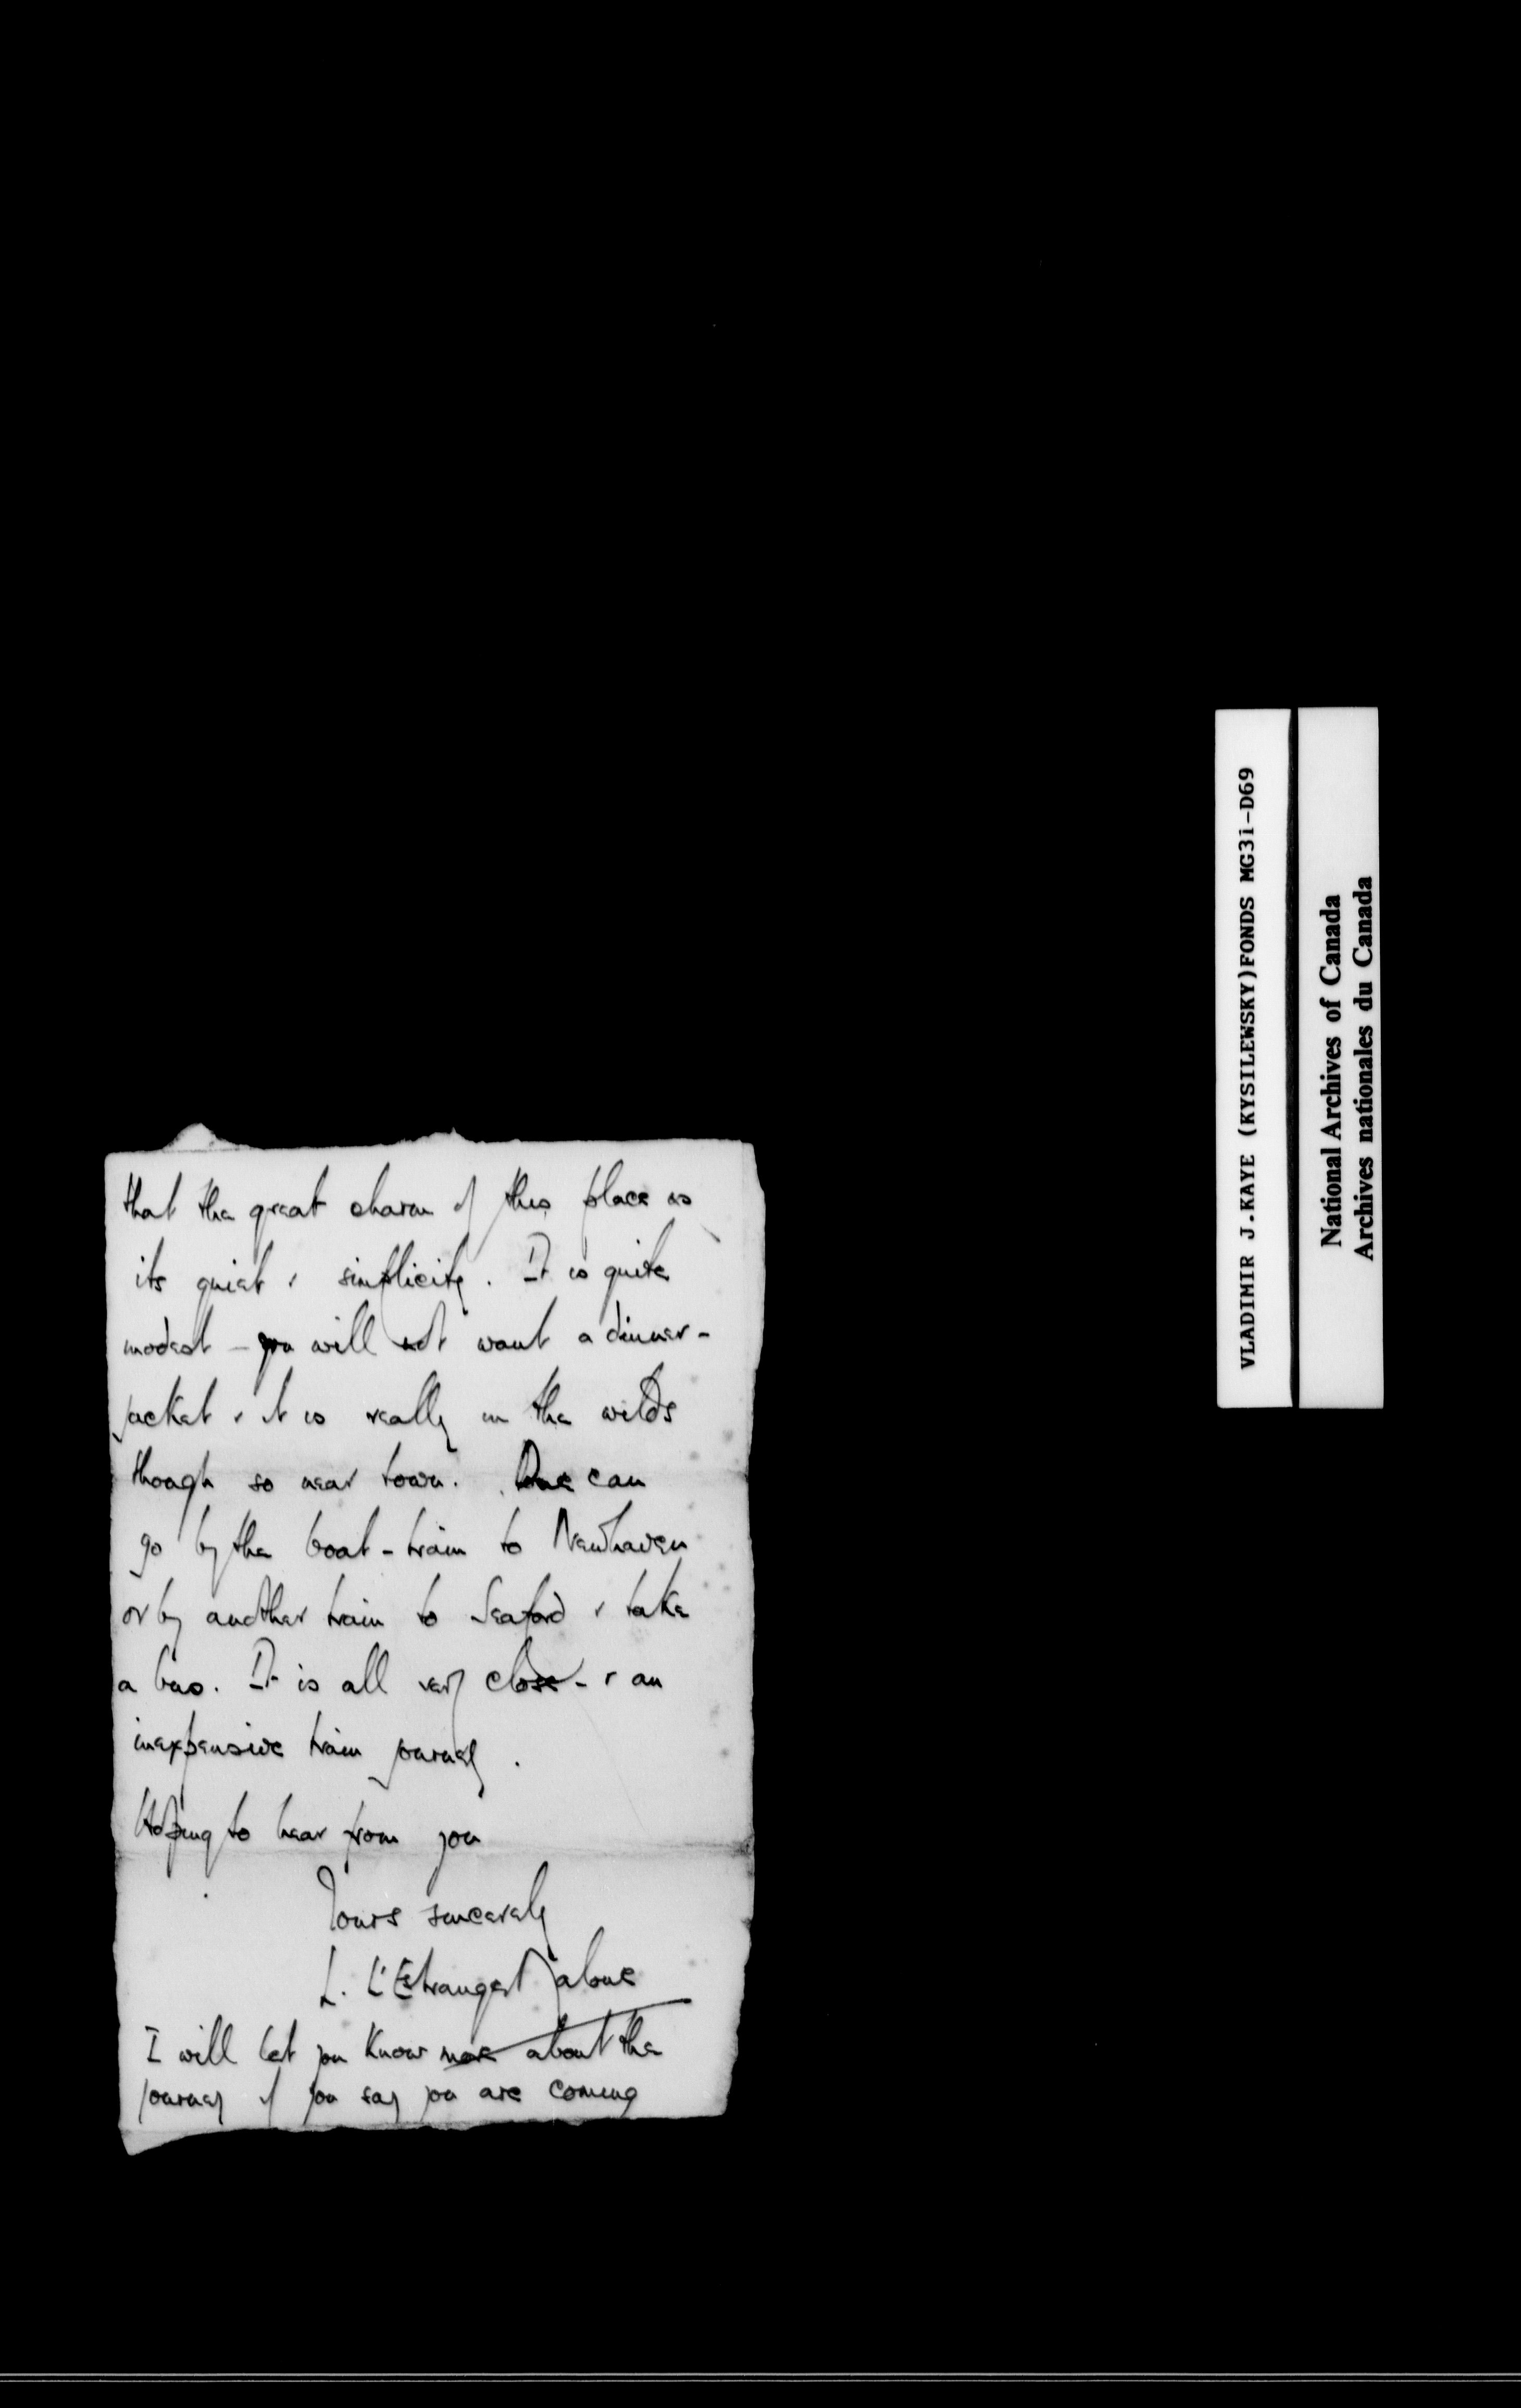 that the great charm of this place is
its quiet & simplicity. It is quite
modest - you will not want a dinner-
jacket & it is really in the wilds
though so near town. One can
go by the boat-train to Newhaven
or by another train to Seaford & take
a bus. It is all very close - & an
inexpensive train journey.
Hoping to hear from you
Yours sincerely
L. L'Estrange Malone
I will let you know more about the
journey if you say you are coming
VLADIMIR J.KAYE (KYSILEWSKY)FONDS MG31-D69
National Archives of Canada
Archives nationales du Canada